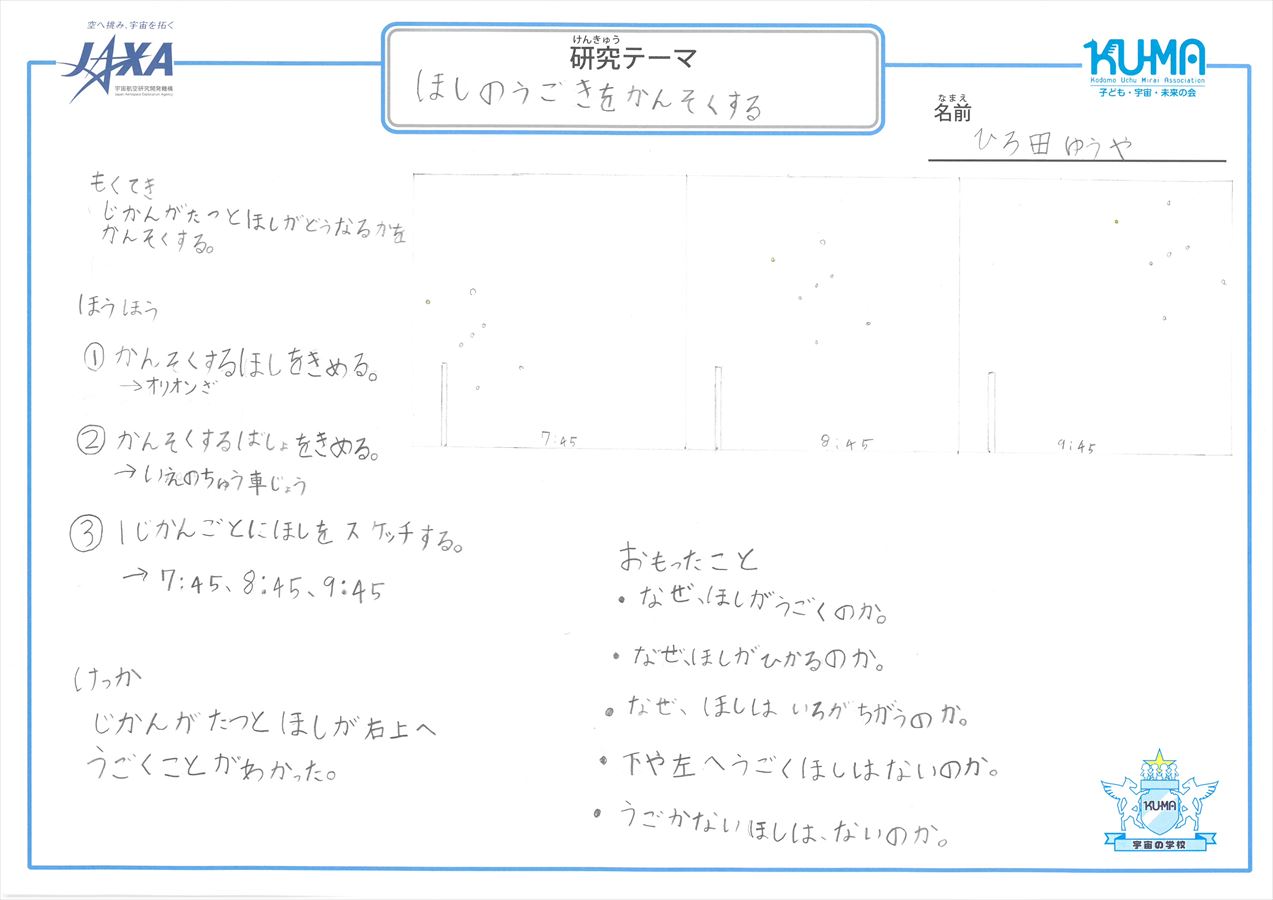 空へ挑み、宇宙を拓く
JAXA
宇宙航空研究開発機構
Japan Aerospace Exploration Agency
けんきゅう
研究テーマ
ほしのうごきをかんそくする
KU-MA
Kodomo Uchu Mirai Association
子ども・宇宙・未来の会
なまえ
名前
ひろ田ゆうや
もくてき
じかんがたつとほしがどうなるかを
かんそくする。
ほうほう
① かんそくするほしをきめる。
→オリオンざ
② かんそくするばしょをきめる。
→いえのちゅう車じょう
③ 1じかんごとにほしをスケッチする。
→7:45、8:45、9:45
けっか
じかんがたつとほしが右上へ
うごくことがわかった。
7:45
8:45
9:45
おもったこと
・なぜ、ほしがうごくのか。
・なぜ、ほしがひかるのか。
・なぜ、ほしはいろがちがうのか。
・下や左へうごくほしはないのか。
・うごかないほしは、ないのか。
KU-MA
宇宙の学校